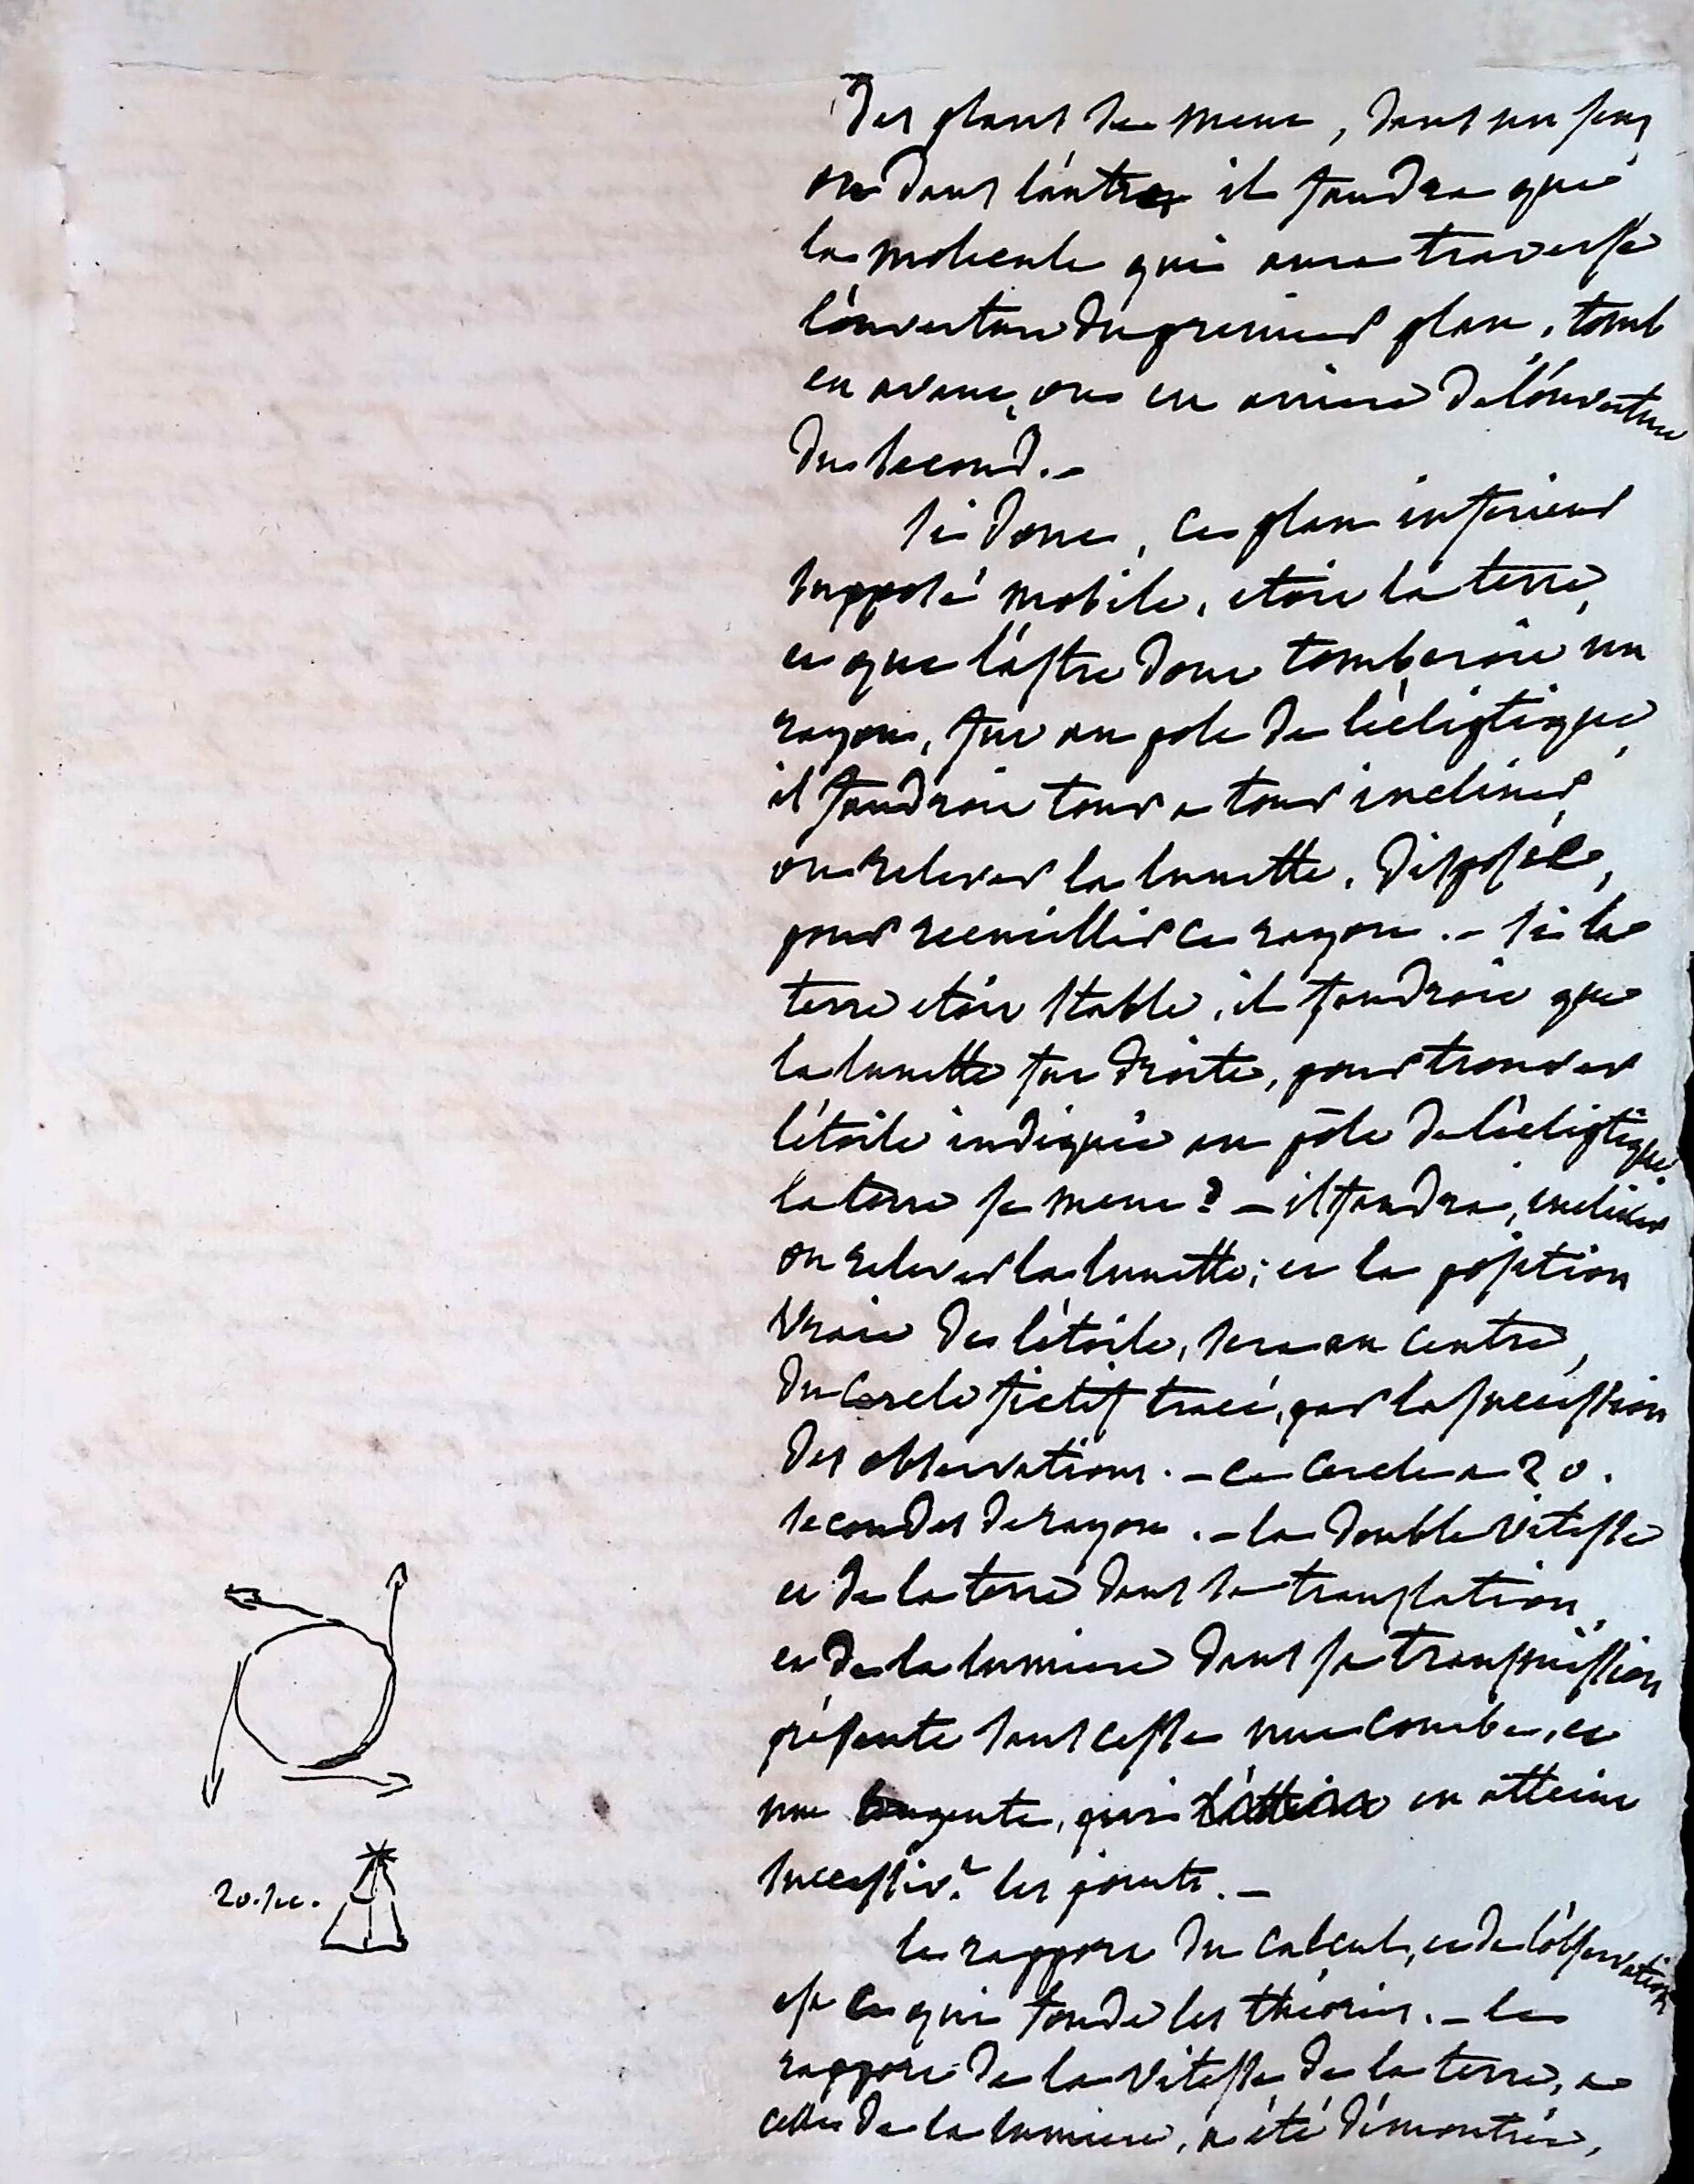 des plans se meut, dans un sens
ou dans l'autre, il faudra que
la molecule qui aura traversé
l'ouverture du premier plan, tomb
en avant, ou en arriere de l'ouverture
du second. -
si donc, ce plan inferieur
supposé mobile, etoit la terre,
et que l'astre dont tomberoit un
rayon, fut au pole de l'écliptique,
il faudroit tour a tour incliner,
ou relever la lunette, disposée,
pour recueillir ce rayon. - si la
terre etoit stable, il faudroit que
la lunette fut droite, pour trouver
l'étoile indiquée au pôle de l'écliptique.
la terre se meut? - il faudra, incliner
ou relever la lunette; et la position
vraie de l'étoile, sera au centre,
du cercle fictif tracé, par la succession
des observations. - ce cercle a 20.
secondes de rayon. - la double vitesse
et de la terre dans sa translation,
et de la lumiere dans sa transmission
présente sans cesse une courbe, et
une tangente, qui l'atteint en atteint
successiv.t les points. -
le rapport du calcul, et de l'observation
est ce qui fonde les théories. - le
rapport de la vitesse de la terre, a
celle de la lumiere, a été démontrée,
20. sec.